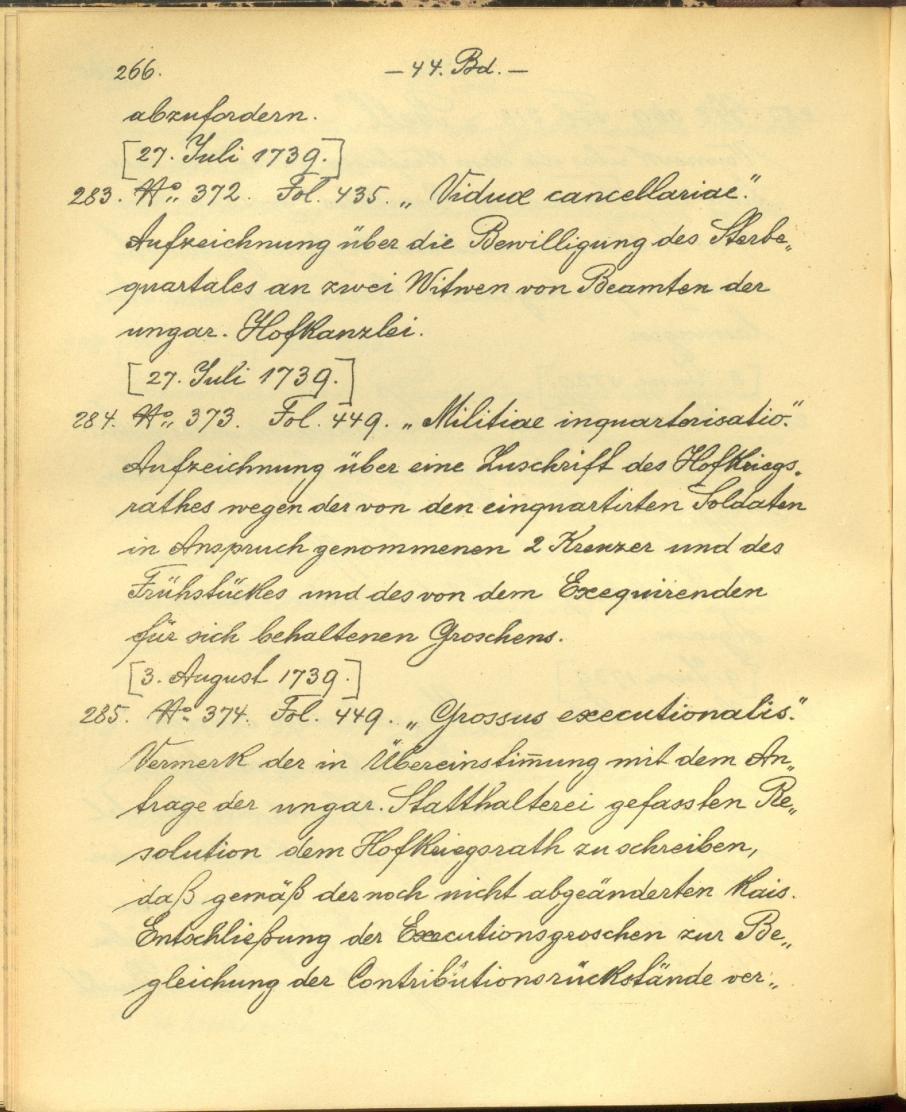 266.
— 44. Bd. —
abzufordern.
[27. Juli 1739.]
283. No. 372. Fol. 435. „Viduæ cancellariae“.
Aufzeichnung über die Bewilligung des Sterbe„
quartales an zwei Witwen von Beamten der
ungar. Hofkanzlei.
[27. Juli 1739.]
284. No. 373. Fol. 449. „Militiae inquartorisatio“.
Aufzeichnung über eine Zuschrift des Hofkriegs„
rathes wegen der von den einquartirten Soldaten
in Anspruch genommenen 2 Kreuzer und des
Frühstückes und des von dem Exequirenden
für sich behaltenen Groschens.
[3. August 1739.]
285. No. 374. Fol. 449. „Grossus executionalis“.
Vermerk der in Übereinstim̅ung mit dem An„
trage der ungar. Statthalterei gefassten Re„
solution dem Hofkriegsrath zu schreiben,
daß gemäß der noch nicht abgeänderten kais.
Entschließung der Executionsgroschen zur Be„
gleichung der Contributionsrückstände ver„